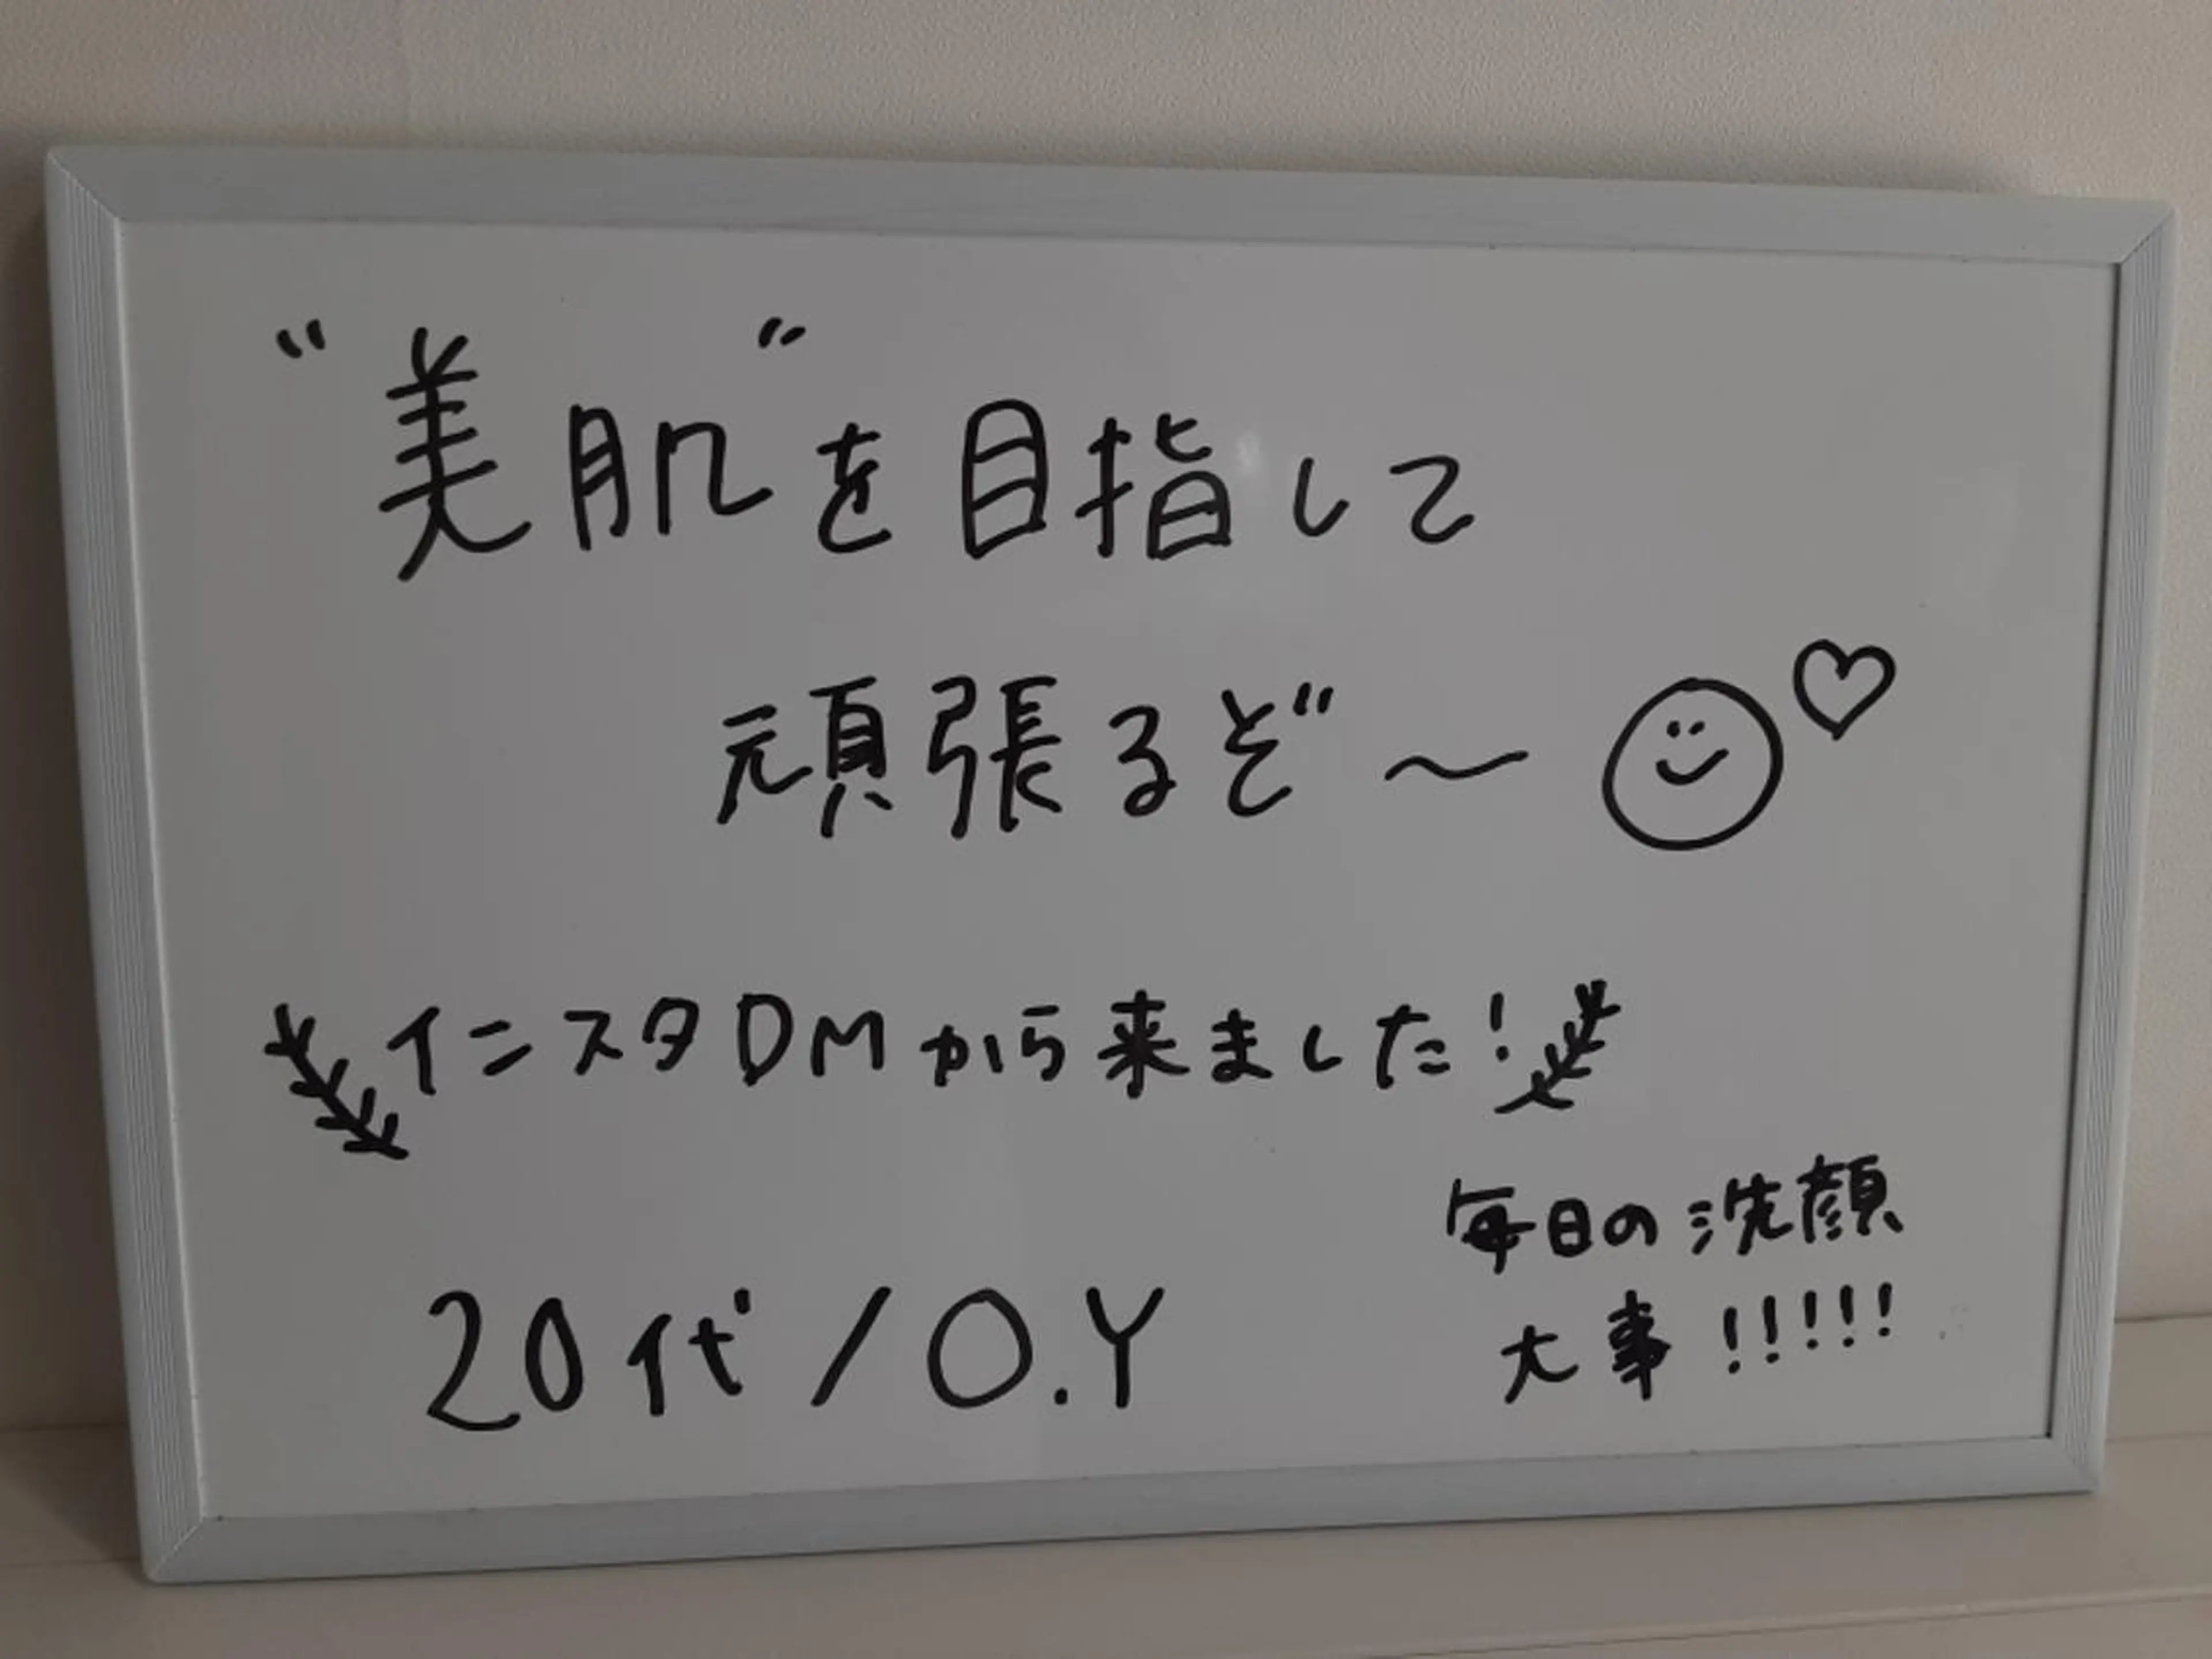 “美肌”を目指して
頑張るぞ〜
インスタDMから来ました!
毎日の洗顔
大事!!!!!
20代/O.Y